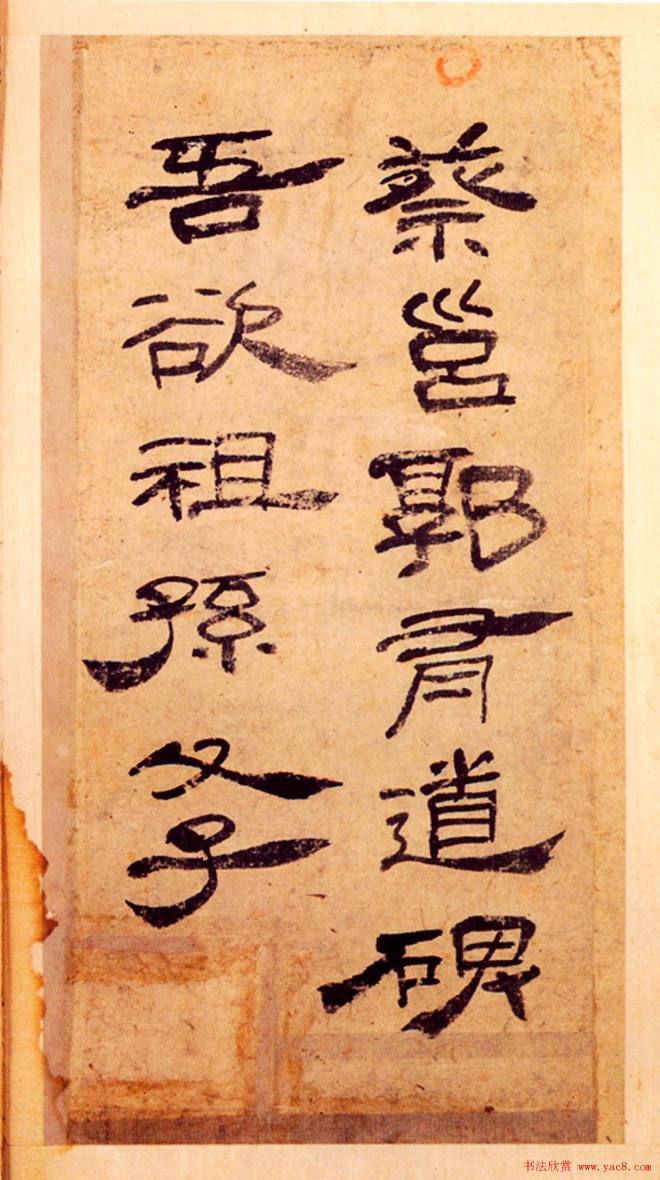 蔡邕郭有道碑
吾欲祖孫
书法欣赏 www.yac8.com